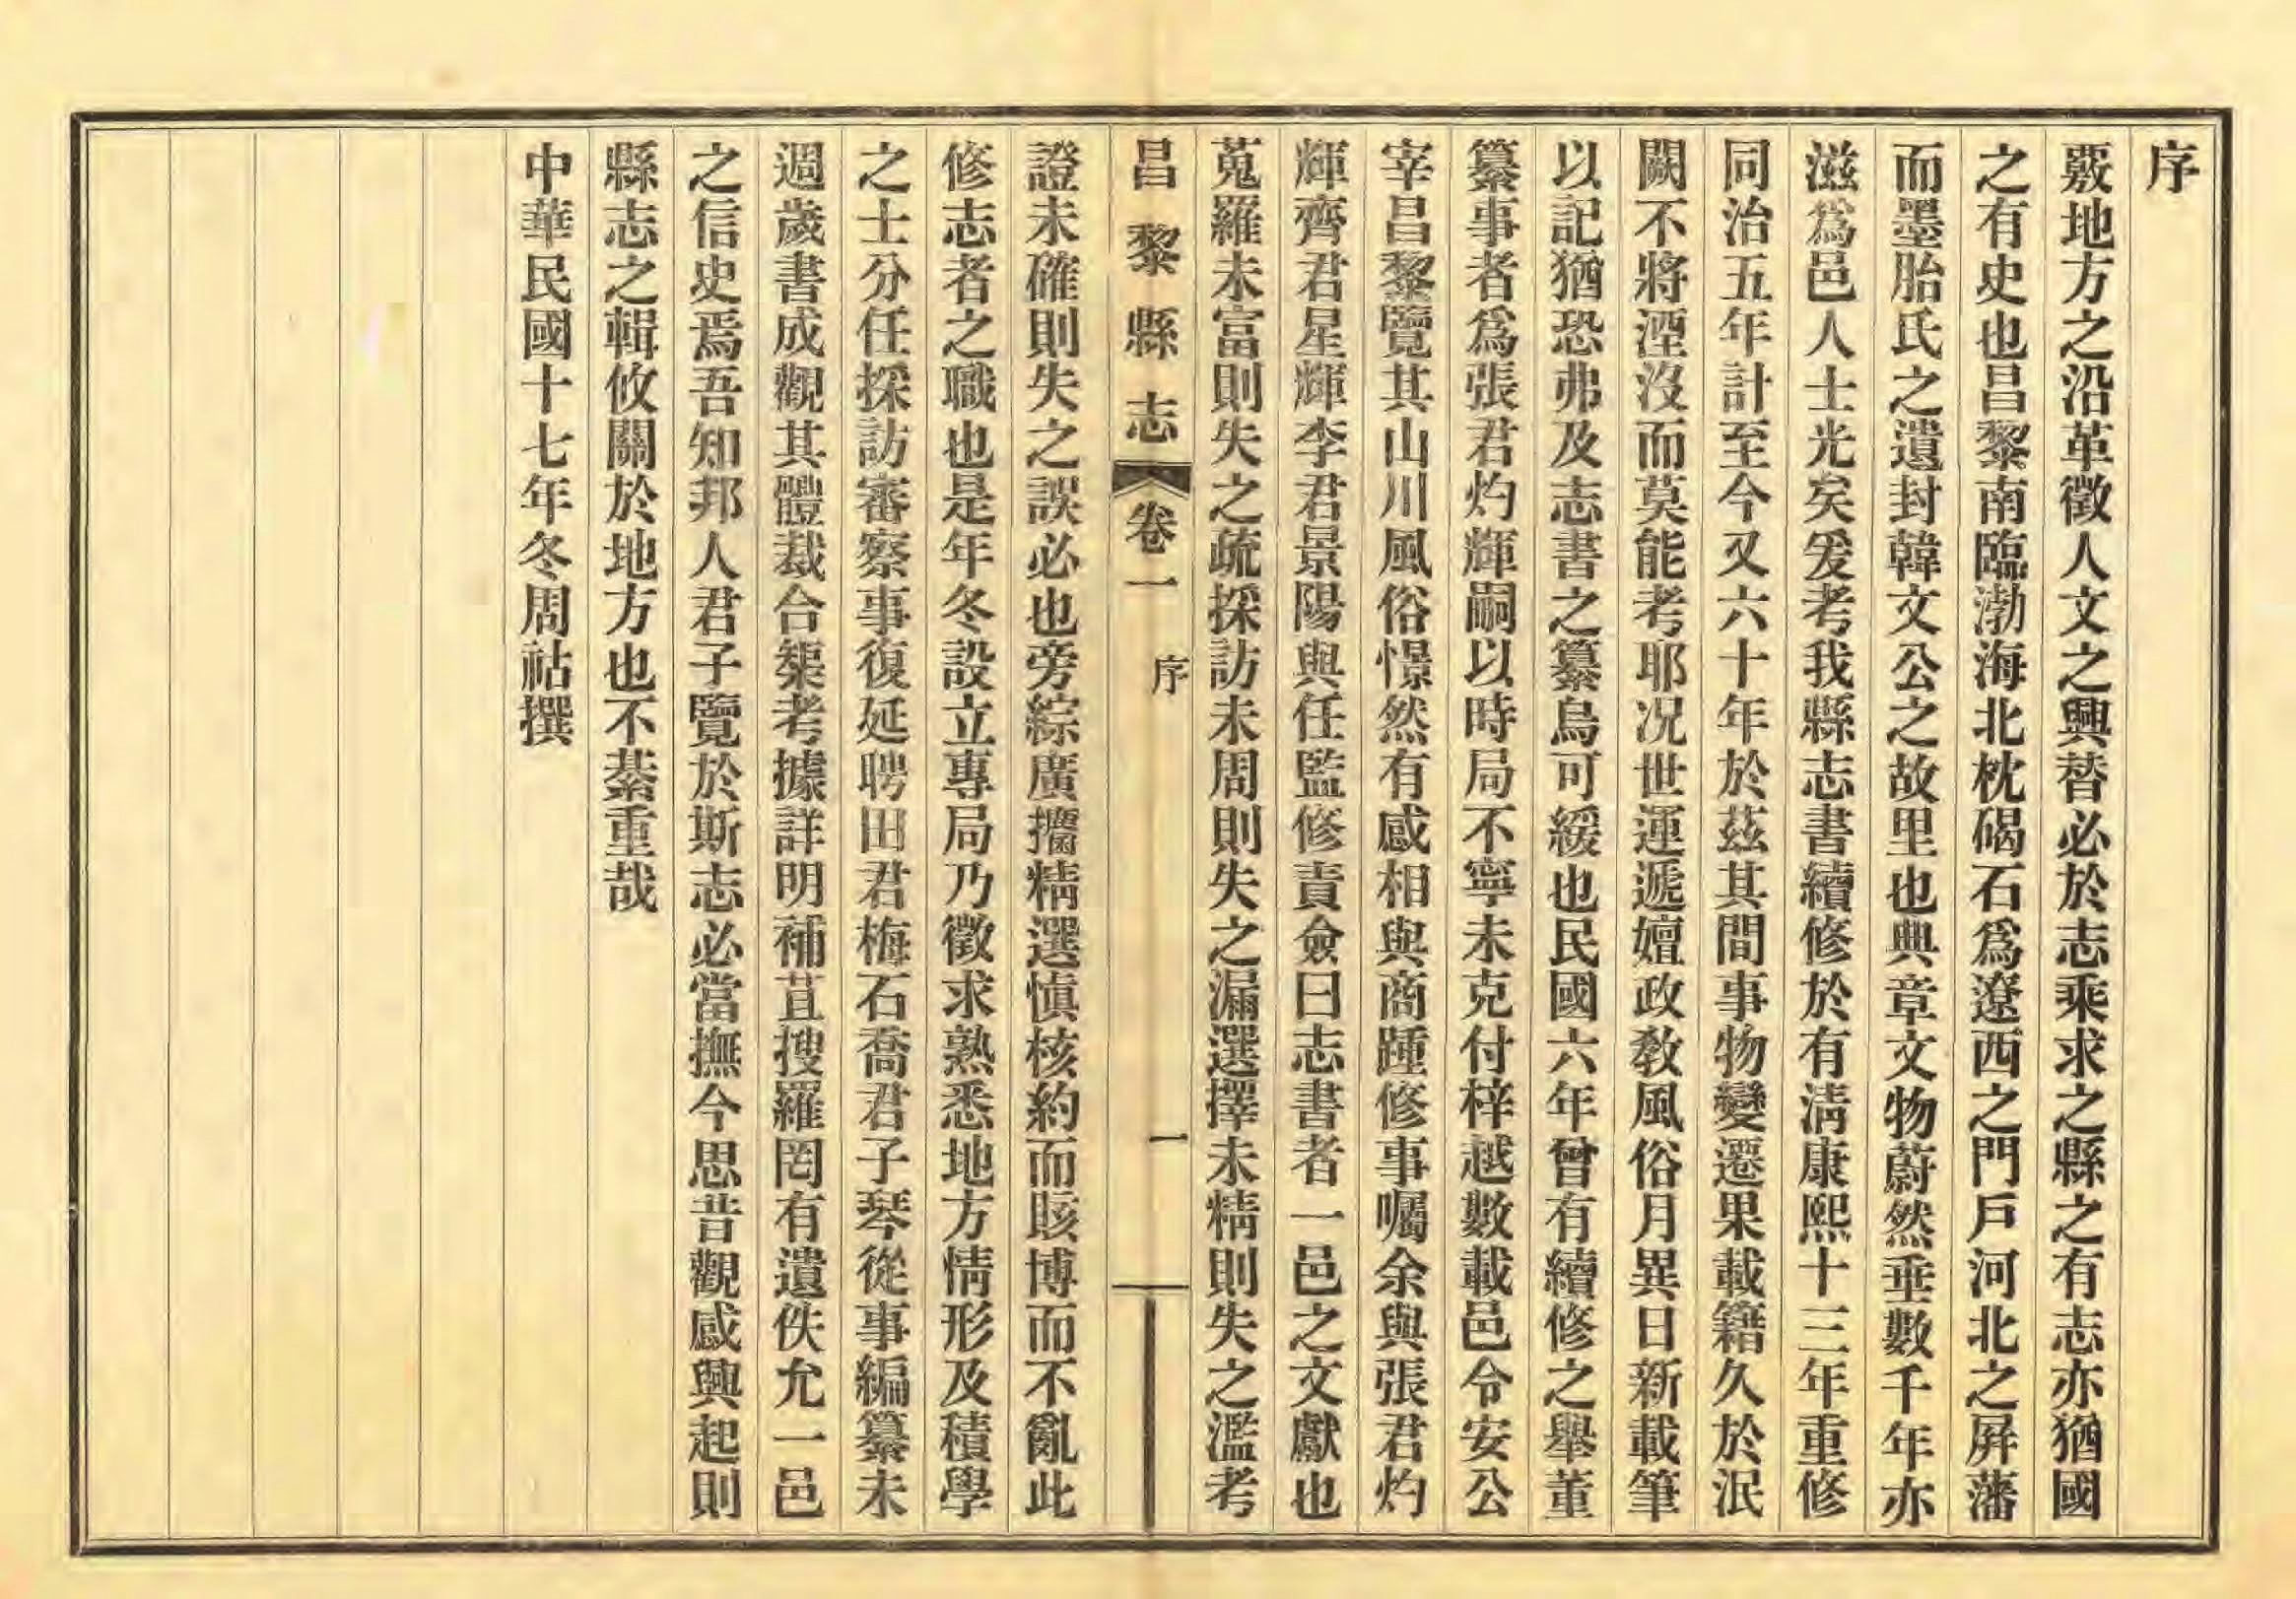 序
覈地方之沿革徵人文之興替必於志乘求之縣之有志亦猶國
之有史也昌黎南臨渤海北枕碣石爲遼西之門戶河北之屏藩
而墨胎氏之遺封韓文公之故里也典章文物蔚然垂數千年亦
滋爲邑人士光矣爰考我縣志書續修於有淸康熙十三年重修
同治五年計至今又六十年於茲其間事物變遷果載籍久於泯
闕不將湮沒而莫能考耶况世運遞嬗政敎風俗月異日新載筆
以記猶恐弗及志書之纂烏可緩也民國六年曾有續修之舉董
纂事者爲張君灼輝嗣以時局不寧未克付梓越數載邑令安公
宰昌黎覽其山川風俗憬然有感相與商踵修事囑余與張君灼
輝齊君星輝李君景陽與任監修責僉曰志書者一邑之文獻也
蒐羅未富則失之疏採訪未周則失之漏選擇未精則失之濫考
昌黎縣志 卷一 序 一
證未確則失之誤必也旁綜廣攟精選愼核約而賅博而不亂此
修志者之職也是年冬設立專局乃徵求熟悉地方情形及積學
之士分任採訪審察事復延聘田君梅石喬君子琴從事編纂未
週歲書成觀其體裁合榘考據詳明補苴搜羅罔有遺佚允一邑
之信史焉吾知邦人君子覽於斯志必當撫今思昔觀感興起則
縣志之輯攸關於地方也不綦重哉
中華民國十七年冬周祜撰